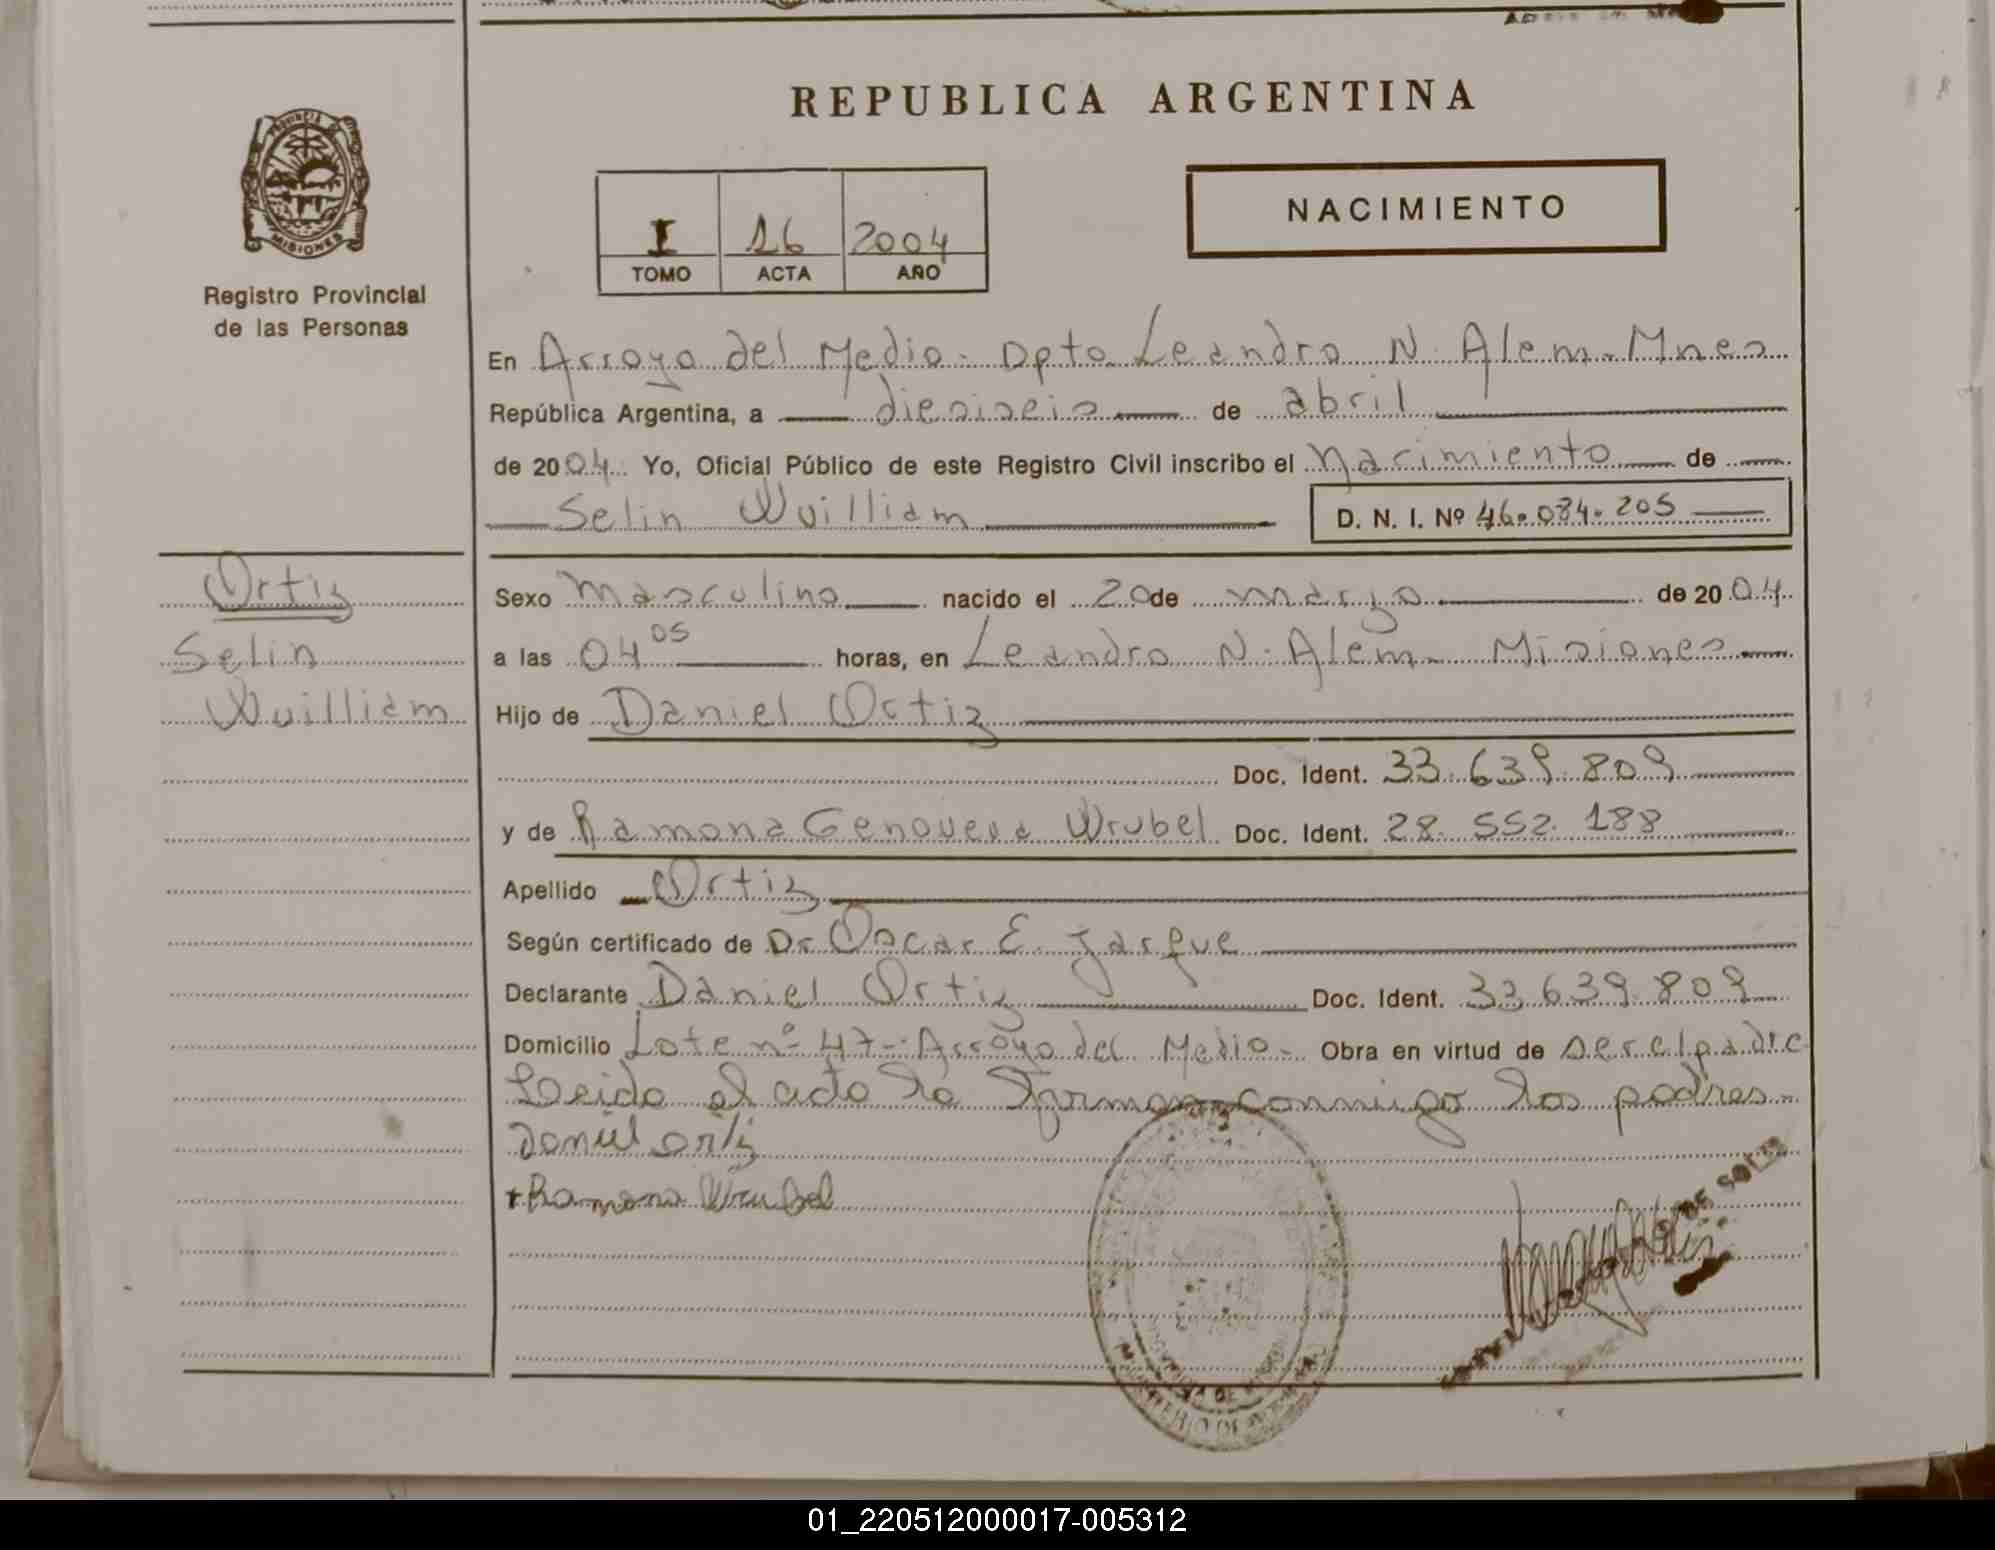 REPUBLICA ARGENTINA
PROVINCIA DE
MISIONES
Registro Provincial
de las Personas
I 16 2004
TOMO ACTA AÑO
NACIMIENTO
En Arroyo del Medio - Dpto Leandro N. Alem - Mnes
República Argentina, a diesiseis de abril
de 2004 Yo, Oficial Público de este Registro Civil inscribo el Nacimiento de
Selin Wuilliam D. N. I. Nº 46.084.205
Ortiz
Selin
Wuilliam
Sexo Masculino nacido el 20 de marzo de 2004
a las 04 05 horas, en Leandro N. Alem - Misiones
Hijo de Daniel Ortiz
Doc. Ident. 33.639.809
y de Ramona Genoveva Wrubel Doc. Ident. 28.552.188
Apellido Ortiz
Según certificado de Dr Oscar E. Jarque
Declarante Daniel Ortiz Doc. Ident. 33.639.809
Domicilio Lote nº 47 - Arroyo del Medio - Obra en virtud de ser el padre
Leido el acto lo firman conmigo los padres
Daniel ortiz
+ Ramona Wrubel
MINISTERIO DE
01_220512000017-005312